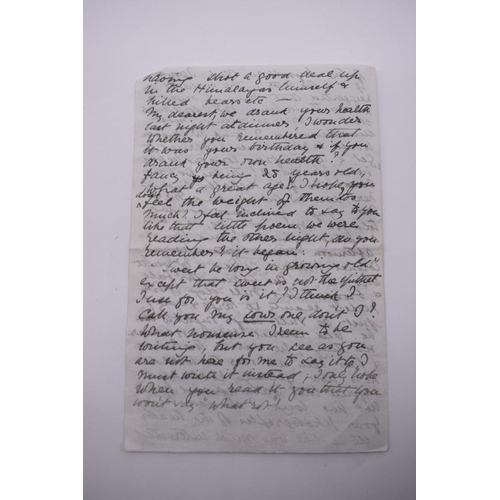 having shot a good deal up
in the Himalayas himself &
killed bears etc —
My dearest, we drank your health
last night at dinner, I wonder
whether you remembered that
it was your birthday & if you
drank your own health?!
Fancy being 25 years old,
What a great age! I hope you
don't feel the weight of them too
much? I feel inclined to say to you
like that little poem we were
reading the other night, do you
remember? it began:
"Sweet be long in growing old"
except that sweet is not the epithet
I use for you is it? I think I
call you my own one, don't I?
What nonsense I seem to be
writing, but you see as you
are not here for me to say it to, I
must write it instead, I only hope
when you read it you that you
won't say "What rot"!